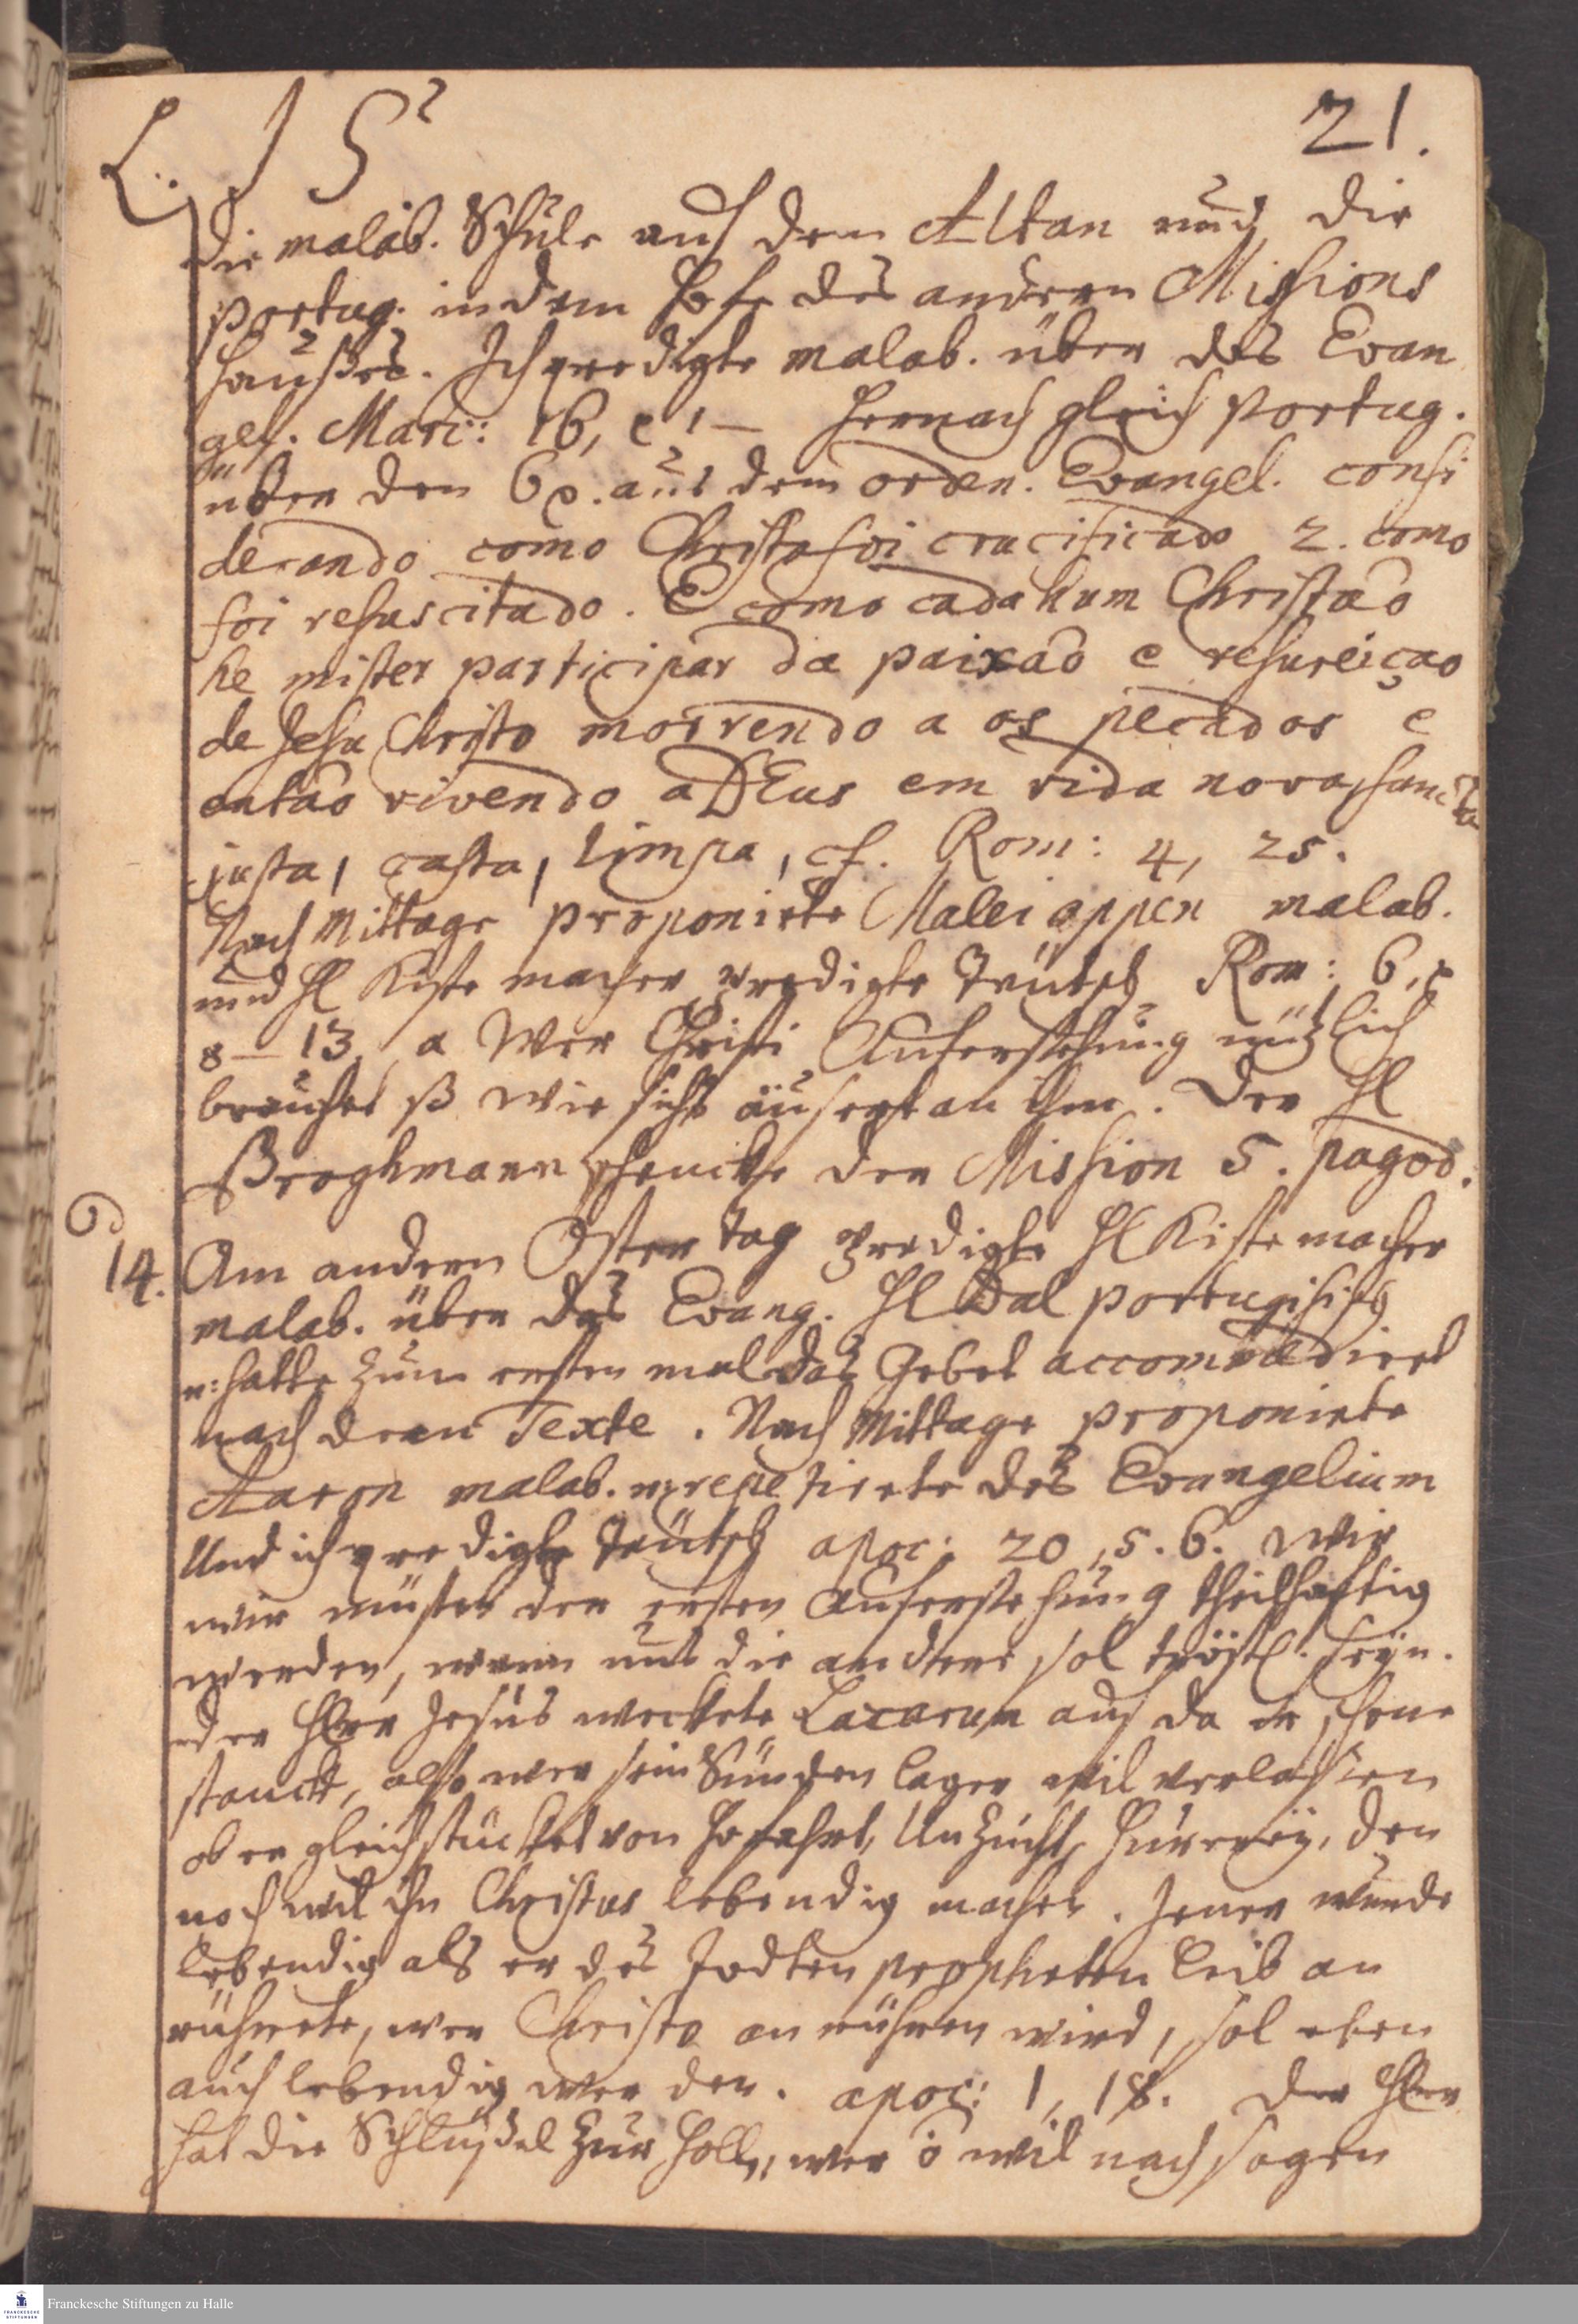 L. J S²
21.
die malab. Schule auf dem Altan und die
portug. in dem Hofe des andern Missions
Haußes. Ich predigte malab. über das Evan
gel. Marc: 16, v 1 — hernach gleich portug.
über den 6 v. aus dem orden. Evangel. consi
derando como Christo foi crucificado 2. como
foi resuscitado. E como cada hum Christaõ
he mister participar da paixaõ e resureiçao
de Jesu Christo morrendo a os pecados e
entaõ vivendo a DEus em vida nova, sancta
justa, casta, limpa, cf. Rom: 4, 25.
Nach Mittage proponirte Maleiappen malab.
und H Kistemacher predigte Teutsch Rom: 6, v
8 — 13, a Wer Christi Auferstehung nützlich
brauchet ß wie sichs äusert an ihm. Der H
Broghmann schenckte der Mission 5. pagod.
14. Am andern Ostertag predigte H Kistemacher
malab. über das Evang. H Dal portugisisch
u: hatte zum ersten mal das Gebet accommodiret
nach dem Texte. Nach Mittage proponirte
Aaron malab. u: repetirete das Evangelium
Und ich predigte Teutsch apoc: 20, 5. 6. Wie
wir müsten der ersten Auferstehung theilhaftig
werden, wenn uns die andere sol tröstl. seyn.
der Herr Jesus weckete Lazarum auf da er schon
stanck, also wer sein Sünden lager wil verlassen
ob er gleich stincket von Hofahrt, Unzucht, Hurerey, den
noch wil ihn Christus lebendig machen. Jener wurde
lebendig als er des Todten propheten Leib an
rührete, wer Christo anrühren wird, sol eben
auch lebendig werden. apoc: 1, 18. Der Herr
hat die Schlüßel zur Holle, wer õ wil nach sagen
Franckesche Stiftungen zu Halle